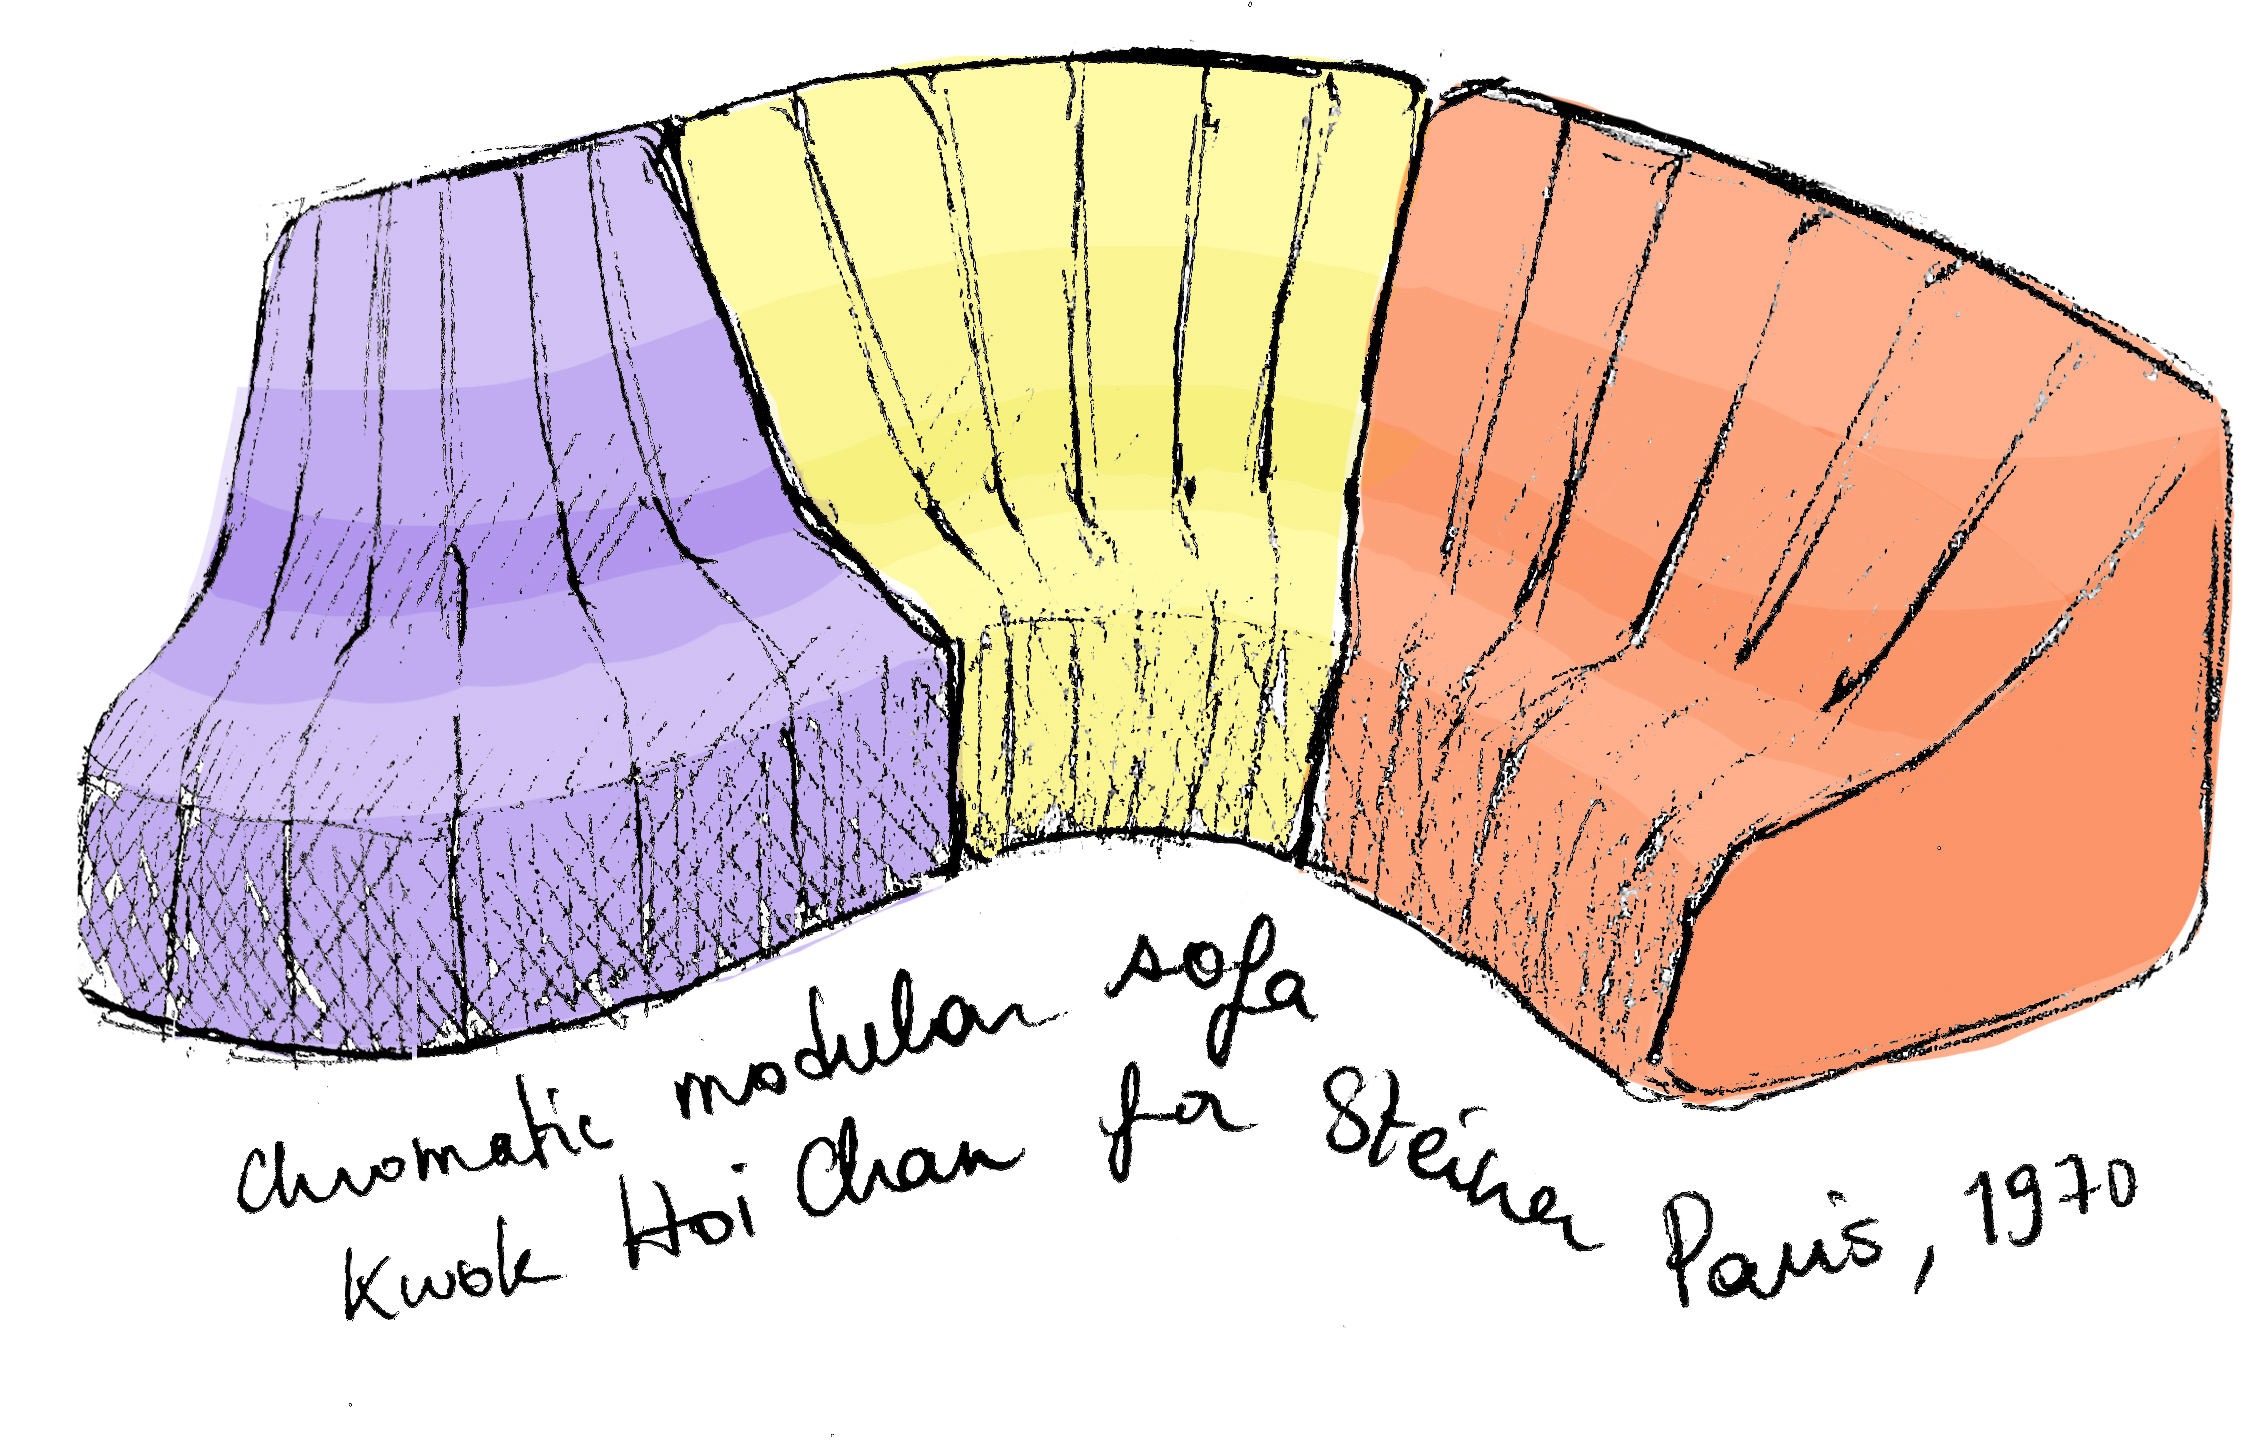 Chromatic modular sofa
Kwok Hoi Chan for Steiner Paris, 1970